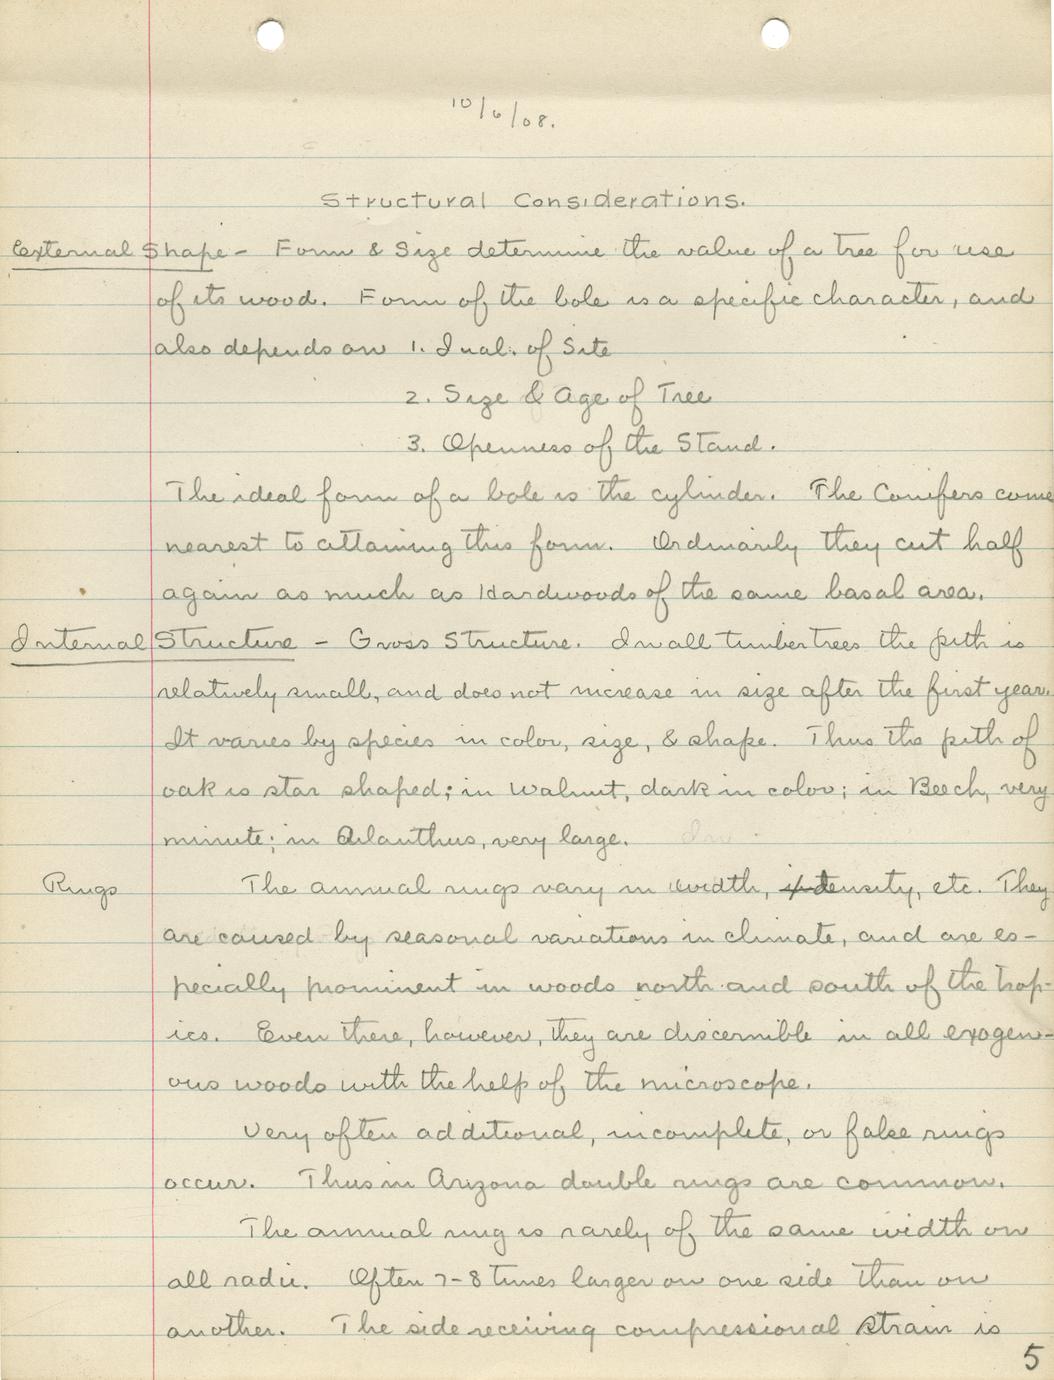 10/6/08.
Structural Considerations.
External Shape - Form & Size determine the value of a tree for use
of its wood. Form of the bole is a specific character, and
also depends on 1. Qual. of Site
2. Size & Age of Tree
3. Openness of the Stand.
The ideal form of a bole is the cylinder. The Conifers come
nearest to attaining this form. Ordinarily they cut half
again as much as Hardwoods of the same basal area.
Internal Structure - Gross Structure. In all timber trees the pith is
relatively small, and does not increase in size after the first year.
It varies by species in color, size, & shape. Thus the pith of
oak is star shaped; in Walnut, dark in color; in Beech, very
minute; in Ailanthus, very large.
Rings The annual rings vary in width, density, etc. They
are caused by seasonal variations in climate, and are es-
pecially prominent in woods north and south of the trop-
ics. Even there, however, they are discernible in all exogen-
ous woods with the help of the microscope.
Very often additional, incomplete, or false rings
occur. Thus in Arizona double rings are common.
The annual ring is rarely of the same width on
all radii. Often 7-8 times larger on one side than on
another. The side receiving compressional strain is
5